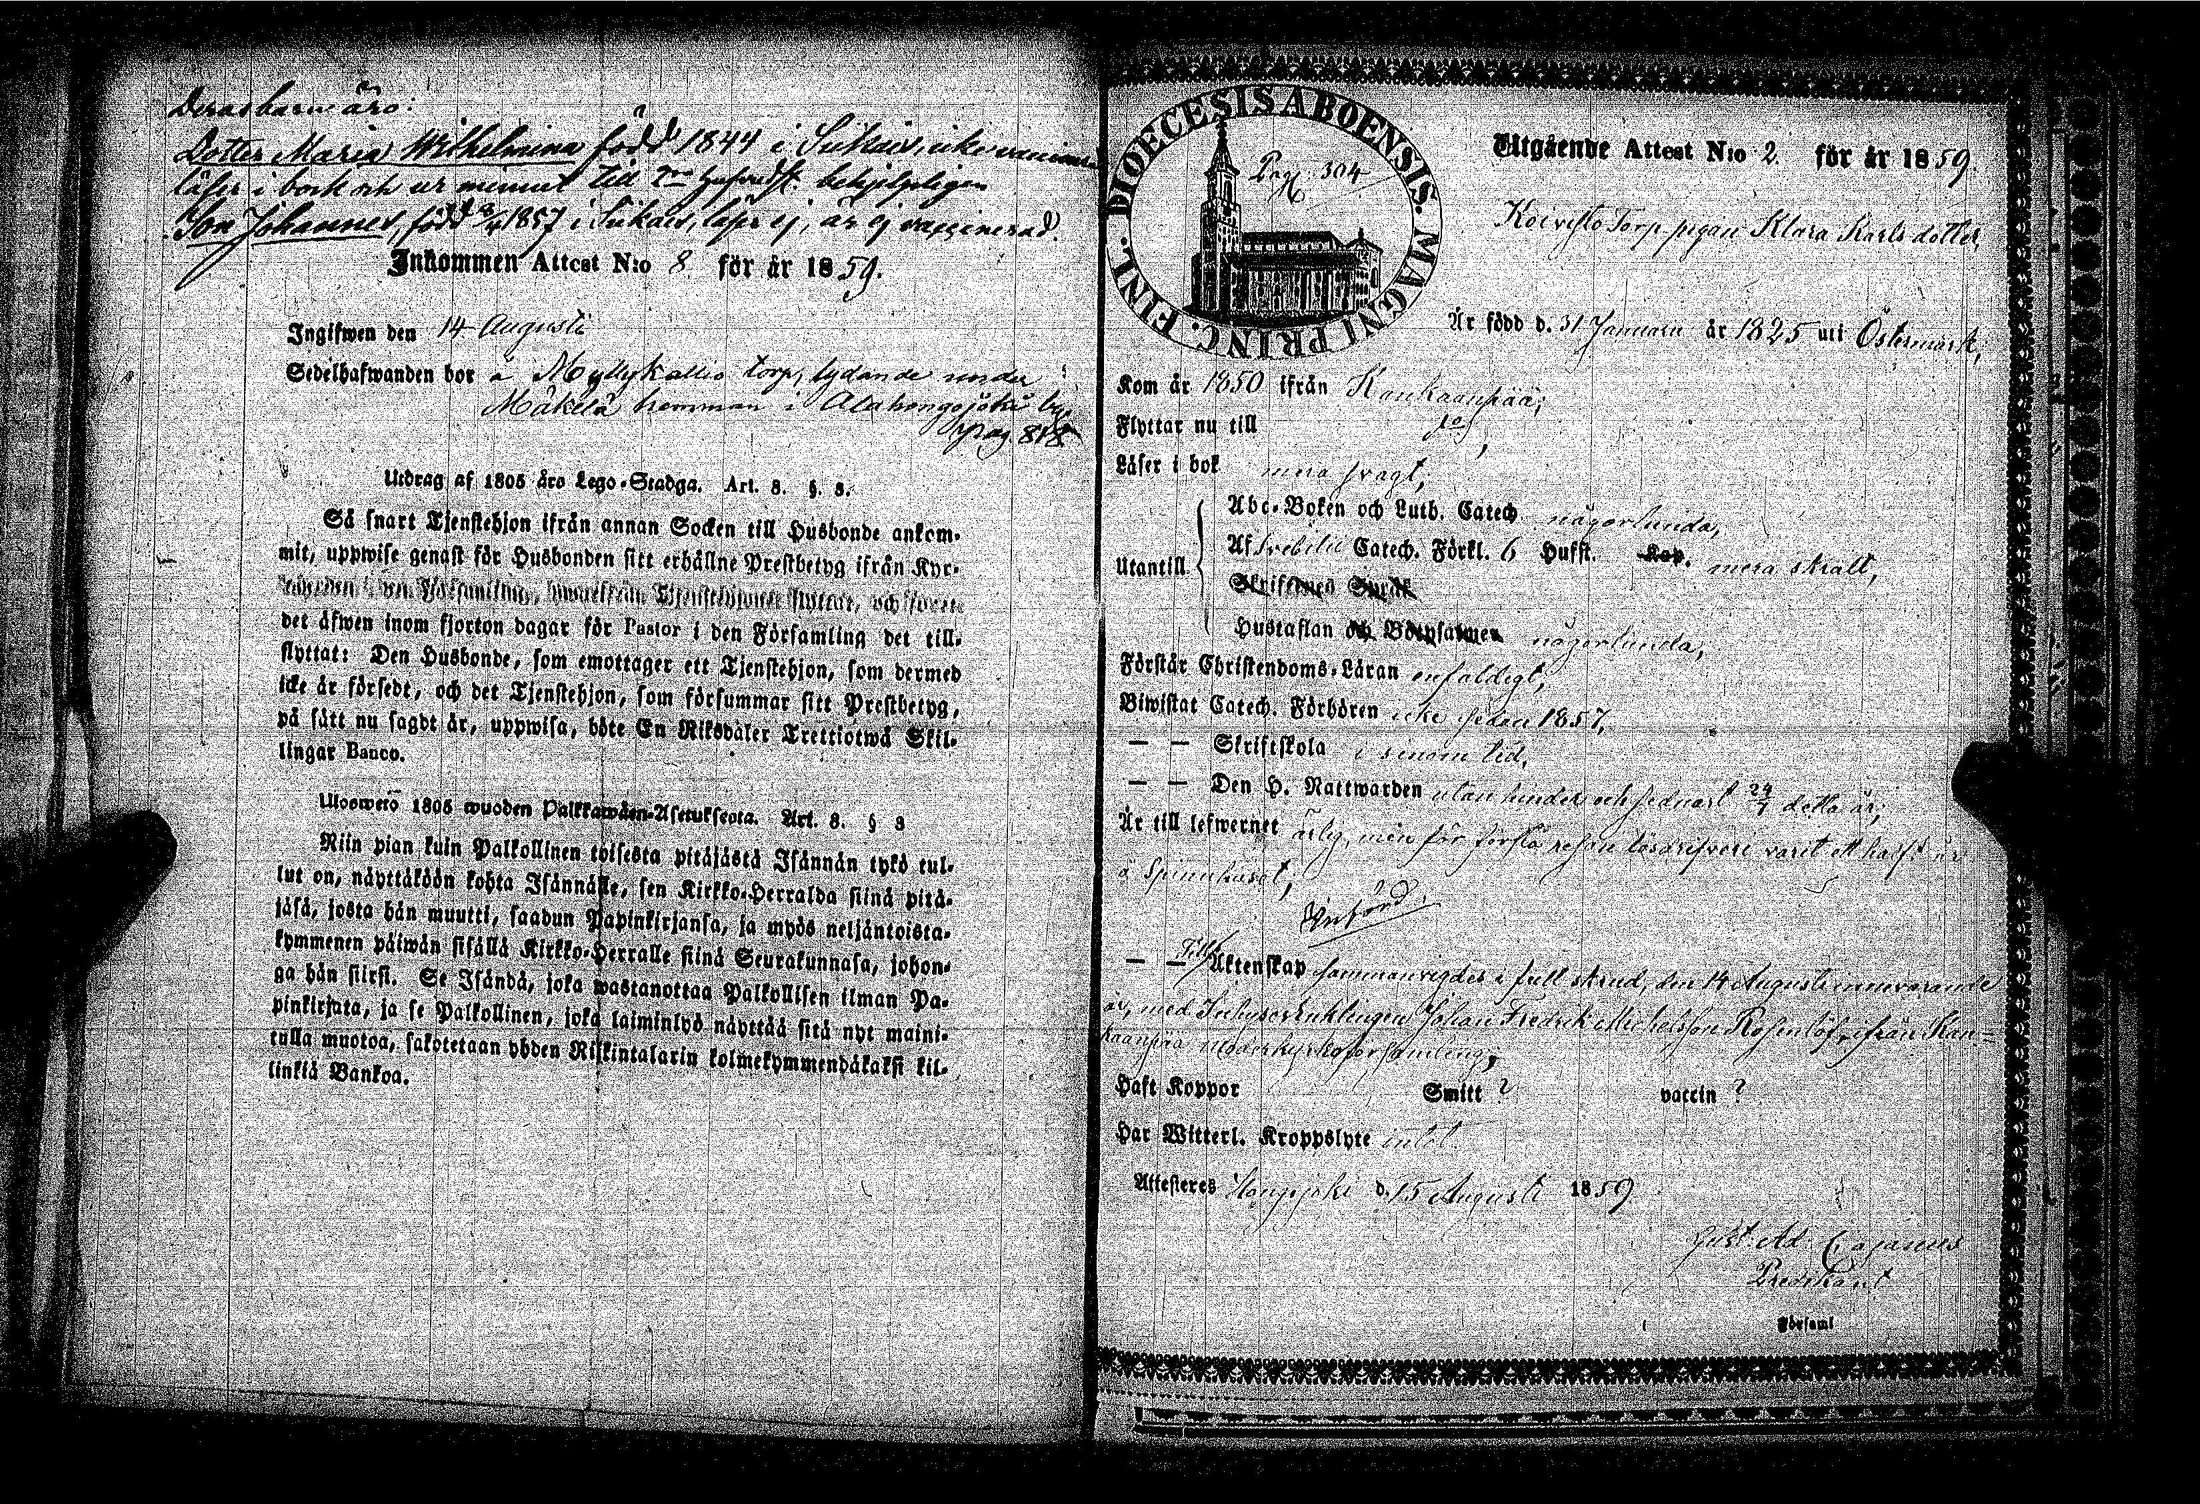 Deras barn äro:
Dotter Maria Wilhelmina född 1844 i Siikais, icke
läser i bok och ur minnet till 2ra hufvudst. behjelpligen
Son Johannes, född 1857 i Siikais, läser ej, är ej vaccinerad.
Inkommen Attest N:o 8. för år 1859.
Ingifwen den 14 Augusti
Sedelhafwanden bor å Myllykallio torp, lydande under
Mäkelä hemman i Alahongojoki by,
pag. 818
Utdrag af 1805 åro Lego-Stadga. Art. 8. §. 3.
Så snart Tjenstehjon ifrån annan Socken till Husbonde ankom-
mit, uppwise genast för Husbonden sitt erhållne Prestbetyg ifrån Kyr-
Församling, Tjenstehjonet flyttat, och
det äfwen inom fjorton dagar för Pastor i den Församling det till-
flyttat: Den Husbonde, som emottager ett Tjenstehjon, som dermed
icke är försedt, och det Tjenstehjon, som försummar sitt Prestbetyg,
på sätt nu sagdt är, uppwisa, böte En Riksdaler Trettiotwå Skil-
lingar Banco.
Uloswetö 1805 wuoden Palkkawäen-Asetuksesta. Art. 8. § 3
Niin pian kuin Palkollinen toisesta pitäjästä Isännän tykö tul-
lut on, näyttäköön kohta Isännälle, sen Kirkko-Herralda siinä pitä-
jäsä, josta hän muutti, saadun Papinkirjansa, ja myös neljäntoista-
kymmenen päiwän sisällä Kirkko-Herralle siinä Seurakunnasa, johon-
ga hän siirsi. Se Isändä, joka wastanottaa Palkollisen ilman Pa-
pinkirjata, ja se Palkollinen, joka laiminlyö näyttää sitä nyt maini-
tulla muotoa, sakotetaan yhden Riikintalarin kolmekymmendäkaksi kil-
lingiä Bankoa.
DIOECESIS ABOENSIS. MAGNI PRINC. FINL.
Pag. 304
Utgående Attest N:o 2. för år 1859.
Koivisto Torp pigan Klara Karlsdotter,
Är född d. 31 Januari år 1825 uti Östermark,
Kom år 1850 ifrån Kankaanpää;
Flyttar nu till do,
Läser i bok mera svagt,
Utantill
Abc-Boken och Luth. Catech. någorlunda,
Af Svebilii Catech. Förkl. 6 Hufst. Kap. mera skralt,
Skriftenes Språk
Hustaflan och Botpsalmen någorlunda,
Förstår Christendoms-Läran enfaldigt,
Biwistat Catech. Förhören icke sedan 1857,
— — Skriftskola i sinom tid,
— — Den H. Nattwarden utan hinder och sednast 24/7 detta år,
Är till lefwernet ärlig, men för första resan lösdrifveri varit ett halft år
å Spinnhuset,
Införd.
— — Till Äktenskap sammanvigdes i full skrud, den 14 Augusti innevarande
år, med Enklingen Johan Fredrik Michelsson Rosenlöf, ifrån Kan-
kaanpää moderkyrkoförsamling;
Haft Koppor Smitt ? vaccin ?
Har Witterl. Kroppslyte intet
Attesteres Hongojoki d. 15 Augusti 1859
Gust. Ad. Cajanus
Predikant
Församl